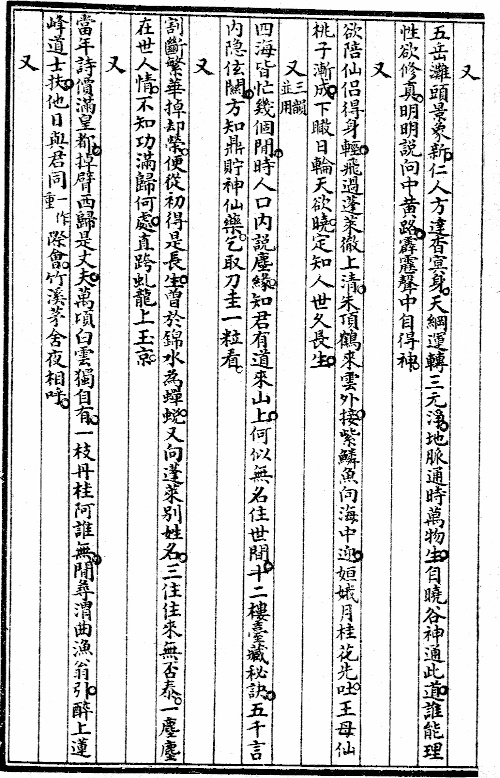 又
五岳灘頭景象新仁人方達杳冥身天綱運轉三元淨地脈通時萬物生自曉谷神通此道誰能理
性欲修真明明説向中黄路霹靂聲中自得神
又
欲陪仙侣得身輕飛過蓬萊徹上清朱頂鶴來雲外接紫鱗魚向海中迎姮娥月桂花先吐王母仙
桃子漸成下瞰日輪天欲曉定知人世久長生
又三韻並用
四海皆忙幾個閒時人口内説塵緣知君有道來山上何似無名住世間十二樓臺藏秘訣五千言
内隱𢆯關方知鼎貯神仙藥乞取刀圭一粒看
又
割斷繁華掉却榮便從初得是長生曾於錦水為蟬蛻又向蓬萊别姓名三住住來無否泰一塵塵
在世人情不知功滿歸何處直跨虬龍上玉京
又
當年詩價滿皇都掉臂西歸是丈夫萬頃白雲獨自有一枝丹桂阿誰無閒尋渭曲漁翁引醉上蓮
峰道士扶他日與君同一作重際會竹溪茅舍夜相呼